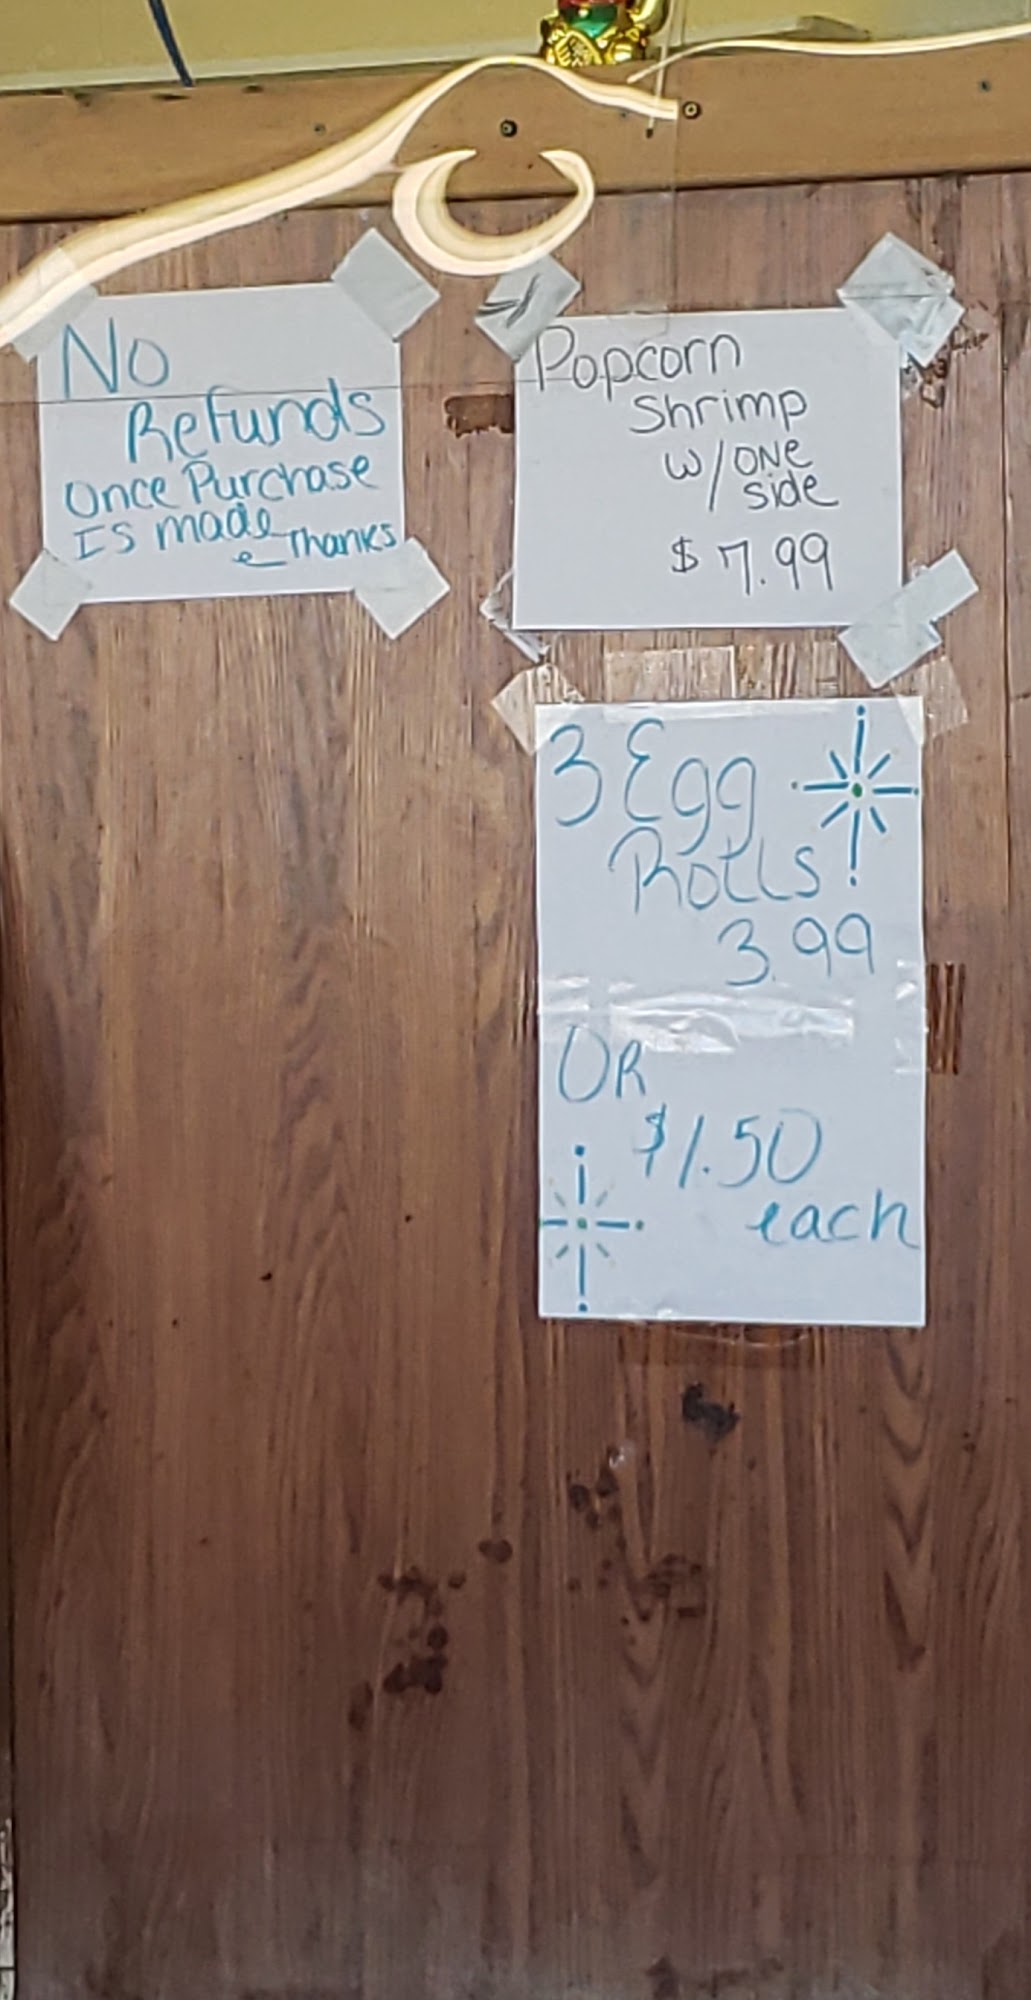 No
Refunds
Once Purchase
Is made
Thanks
Popcorn
Shrimp
w/ONE
side
$7.99
3 Egg
Rolls
3.99
OR
$1.50
each